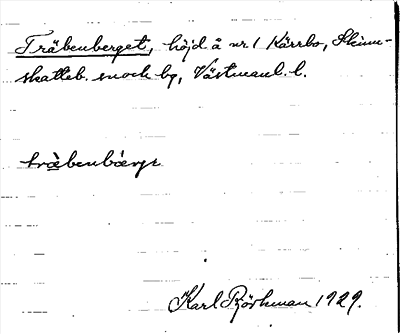 Träbenberget, höjd å nr 1 Kärrbo, Skinn-
skatteb. snock bg, Västmanl. l.
trä̀benbærgə
Karl Björkman 1929.